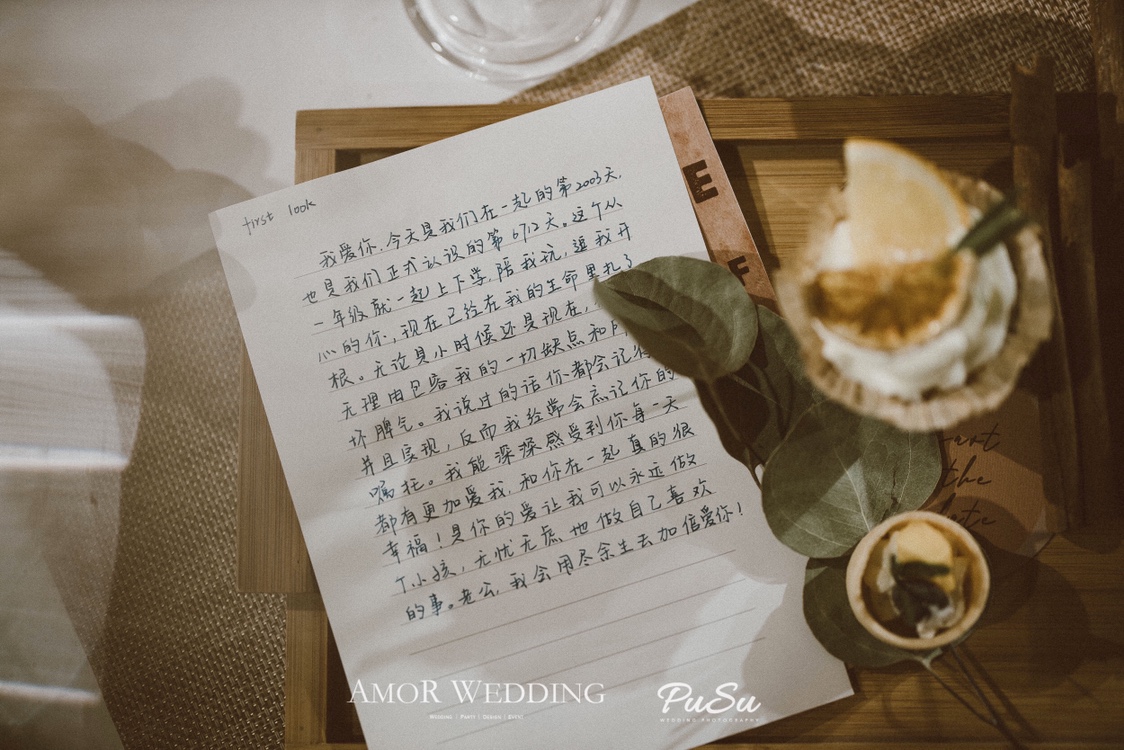 first look
我爱你，今天是我们在一起的第2003天，
也是我们正式认识的第6712天。这个从
一年级就一起上下学，陪我玩，逗我开
心的你，现在已经在我的生命里扎了
根。无论是小时候还是现在，
无理由包容我的一切缺点和
坏脾气。我说过的话你都会记得
并且实现，反而我经常会忘记你的
嘱托。我能深深感受到你每一天
都有更加爱我，和你在一起真的很
幸福！是你的爱让我可以永远做
个小孩，无忧无虑地做自己喜欢
的事。老公，我会用尽余生去加倍爱你！
E
F
the
AMOR WEDDING
WEDDING | PARTY | DESIGN | EVENT
PuSu
WEDDING PHOTOGRAPHY